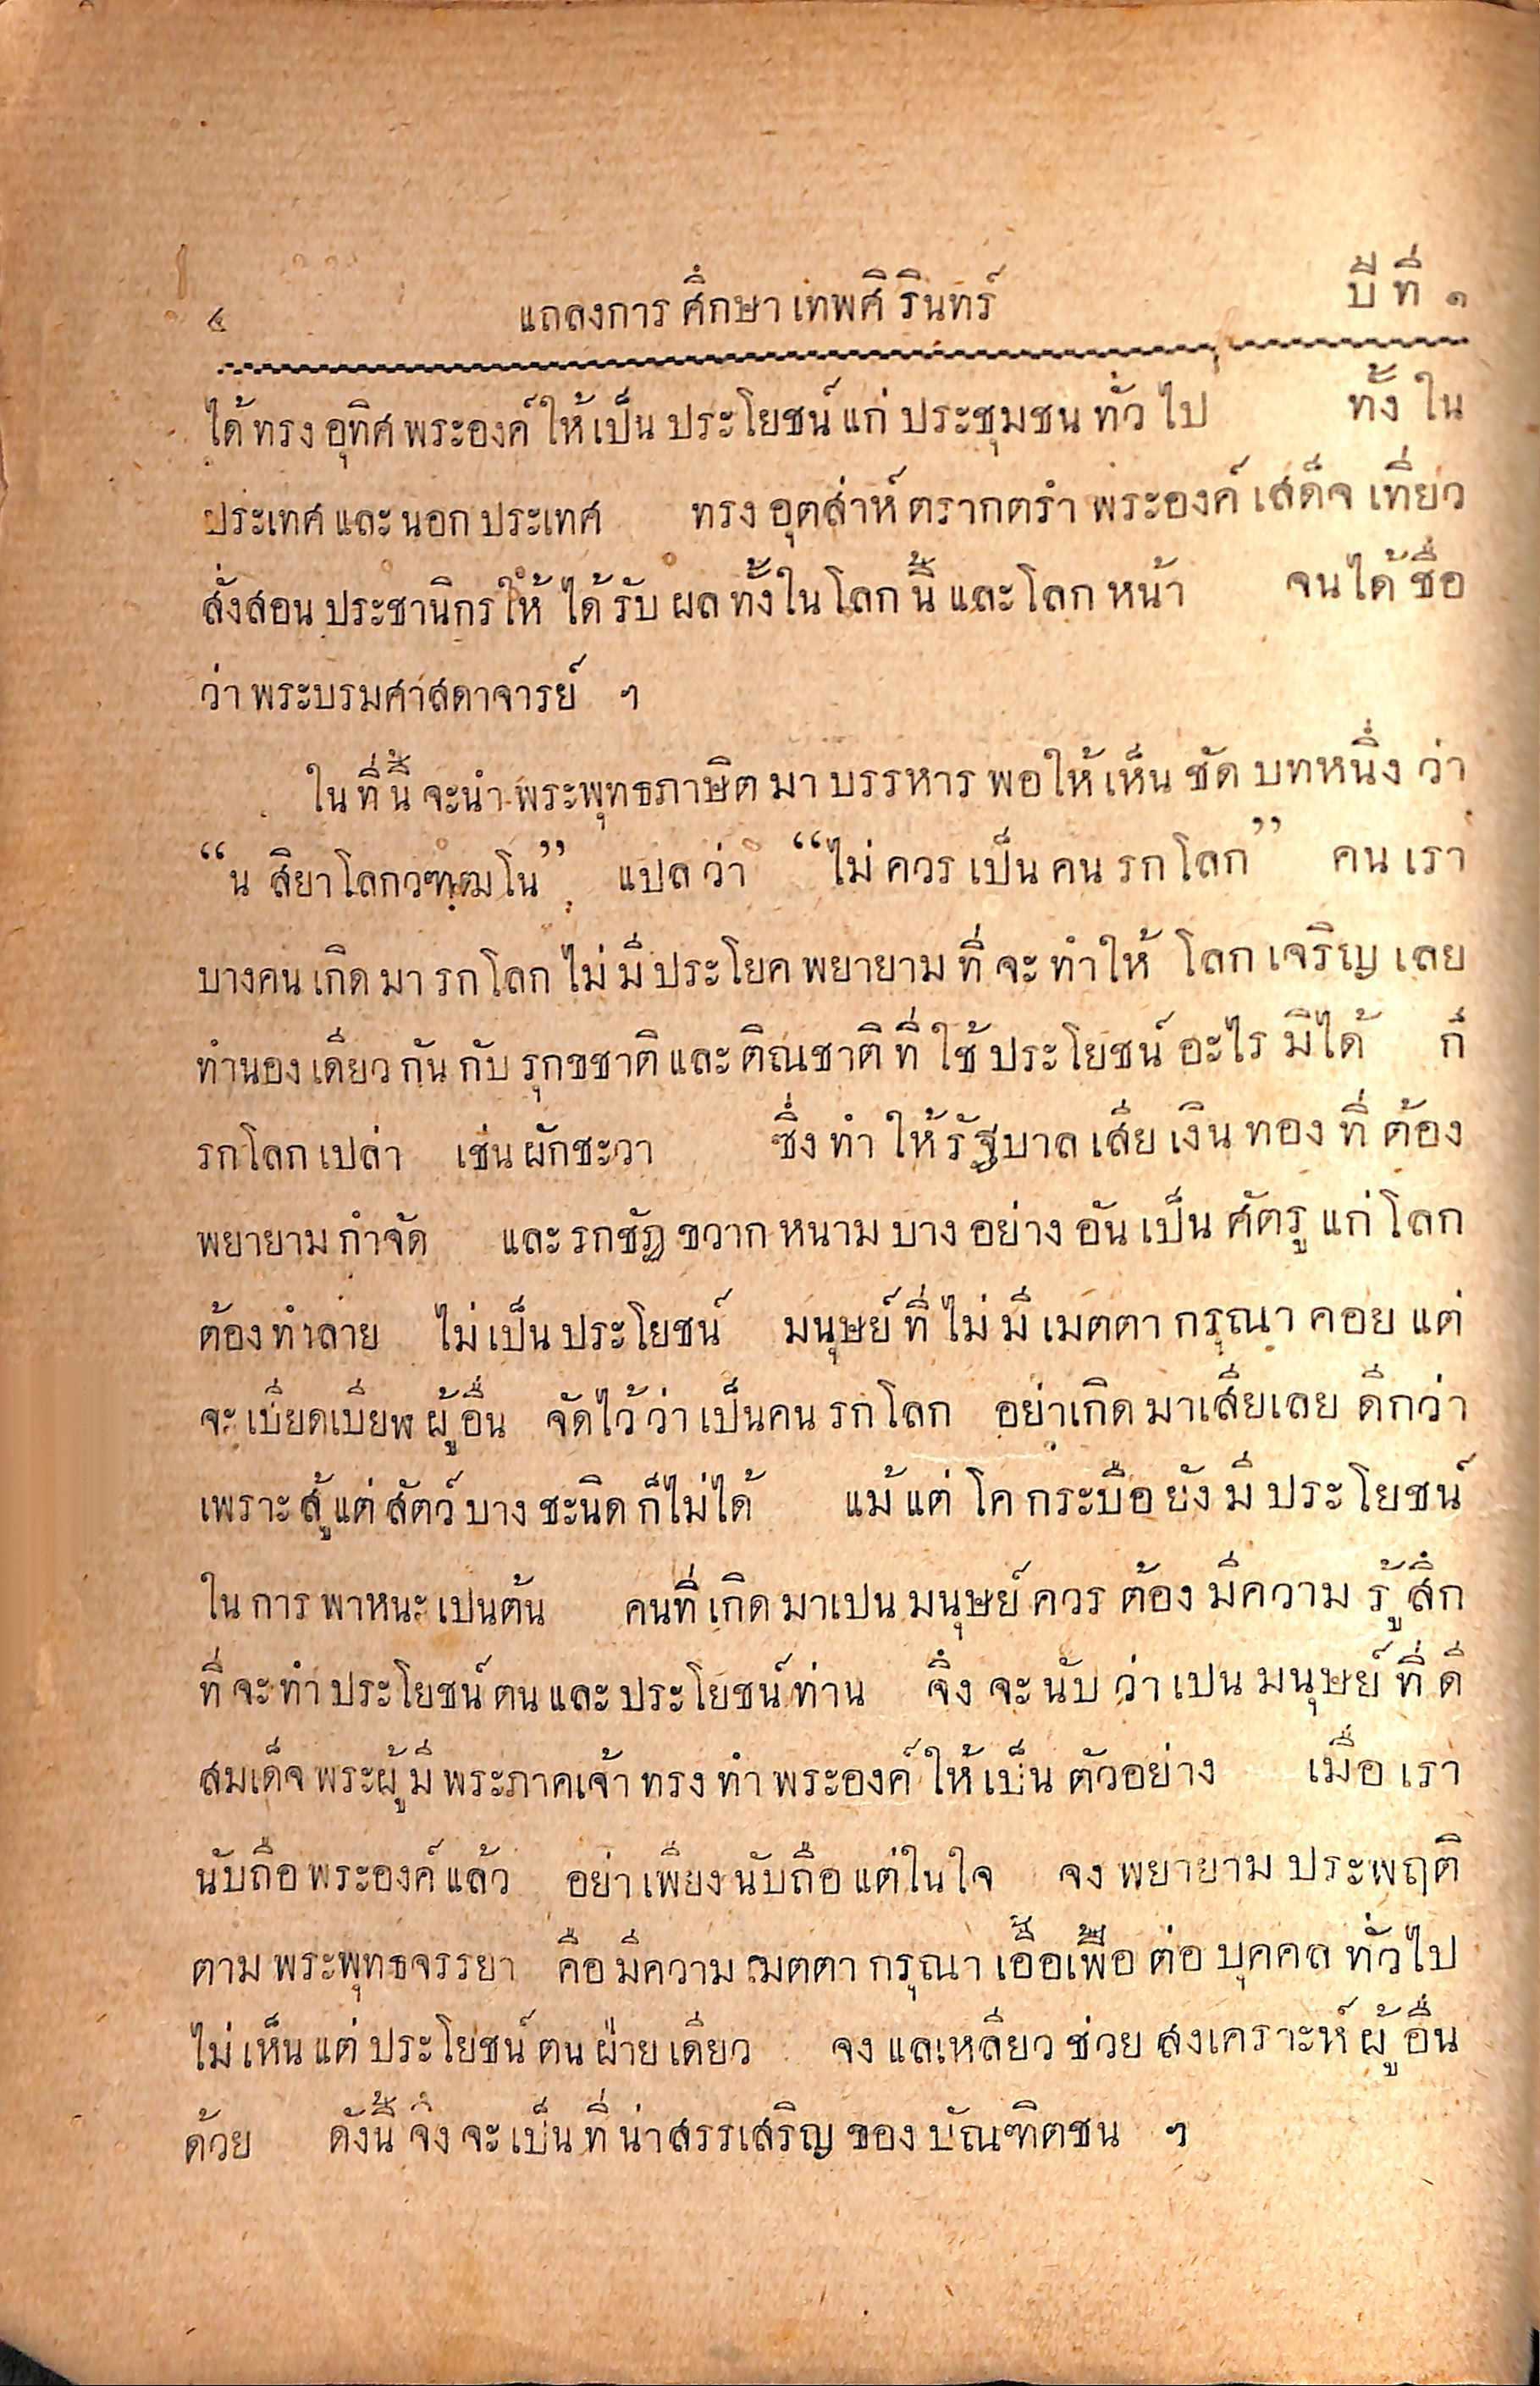 ๔ แถลงการ ศึกษา เทพศิรินทร์ ปีที่ ๑
ได้ทรง อุทิศ พระองค์ ให้เป็น ประโยชน์ แก่ ประชุมชน ทั่ว ไป ทั้ง ใน
ประเทศ และ นอก ประเทศ ทรง อุตส่าห์ ตรากตรำ พระองค์ เสด็จ เที่ยว
สั่งสอน ประชานิกร ให้ ได้ รับ ผล ทั้งใน โลก นี้ และ โลก หน้า จนได้ ชื่อ
ว่า พระบรมศาสดาจารย์ ฯ
ใน ที่ นี้ จะนำ พระพุทธภาษิต มา บรรหาร พอให้ เห็น ชัด บทหนึ่ง ว่า
“น สิยา โลกวฑฺฒโน” แปล ว่า “ไม่ ควร เป็น คน รกโลก” คน เรา
บางคน เกิด มา รกโลก ไม่ มี ประโยค พยายาม ที่ จะ ทำให้ โลก เจริญ เลย
ทำนอง เดียว กัน กับ รุกขชาติ และ ติณชาติ ที่ ใช้ ประโยชน์ อะไร มิได้ ก็
รกโลก เปล่า เช่น ผักชะวา ซึ่ง ทำ ให้ รัฐบาล เสีย เงิน ทอง ที่ ต้อง
พยายาม กำจัด และ รกชัฏ ขวาก หนาม บาง อย่าง อัน เป็น ศัตรู แก่ โลก
ต้อง ทำลาย ไม่ เป็น ประโยชน์ มนุษย์ ที่ ไม่ มี เมตตา กรุณา คอย แต่
จะ เบียดเบียฬ ผู้ อื่น จัดไว้ ว่า เป็นคน รกโลก อย่าเกิด มาเสียเลย ดีกว่า
เพราะ สู้ แต่ สัตว์ บาง ชะนิด ก็ไม่ได้ แม้ แต่ โค กระบือ ยัง มี ประโยชน์
ใน การ พาหนะ เปนต้น คนที่ เกิด มาเปน มนุษย์ ควร ต้อง มีความ รู้ สึก
ที่ จะ ทำ ประโยชน์ ตน และ ประโยชน์ ท่าน จึ่ง จะ นับ ว่า เปน มนุษย์ ที่ ดี
สมเด็จ พระผู้ มี พระภาคเจ้า ทรง ทำ พระองค์ ให้ เป็น ตัวอย่าง เมื่อ เรา
นับถือ พระองค์ แล้ว อย่า เพียง นับถือ แต่ในใจ จง พยายาม ประพฤติ
ตาม พระพุทธจรรยา คือ มีความ เมตตา กรุณา เอื้อเฟื้อ ต่อ บุคคล ทั่วไป
ไม่ เห็น แต่ ประโยชน์ ตน ฝ่าย เดียว จง แลเหลียว ช่วย สงเคราะห์ ผู้ อื่น
ด้วย ดังนี้ จึ่ง จะ เป็น ที่ น่า สรรเสริญ ของ บัณฑิตชน ฯ